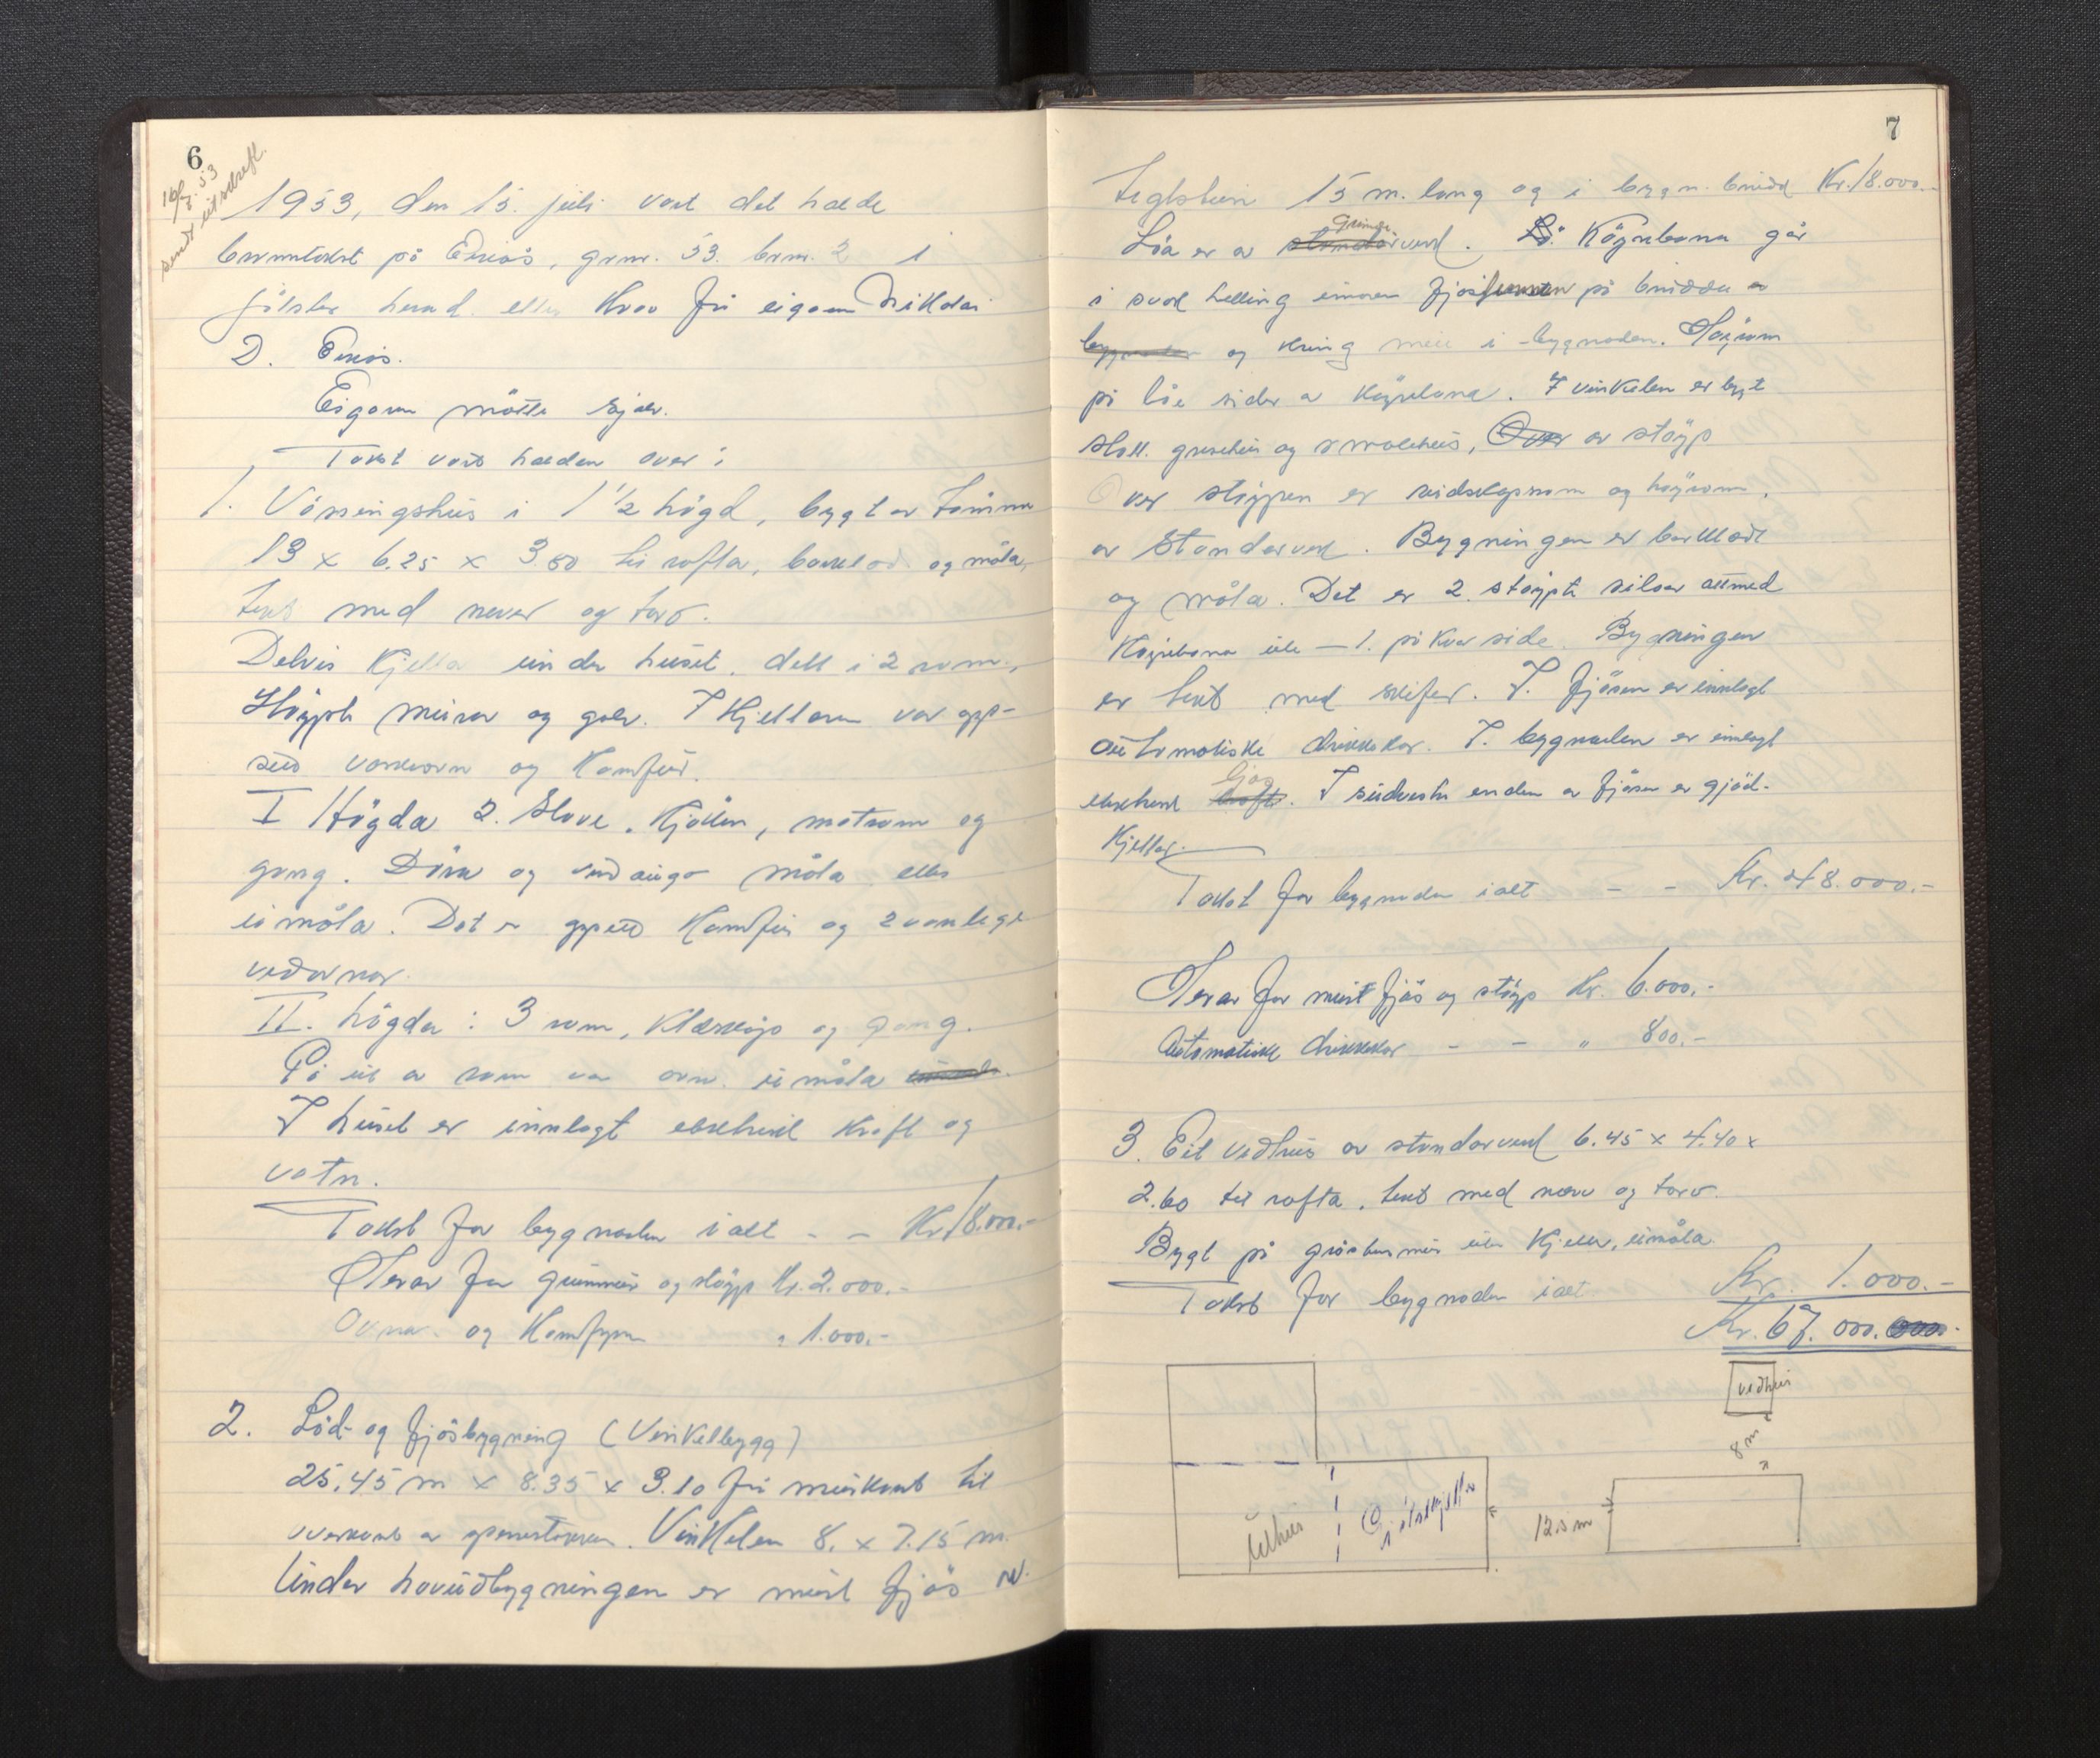 6
16/7.53
sendt utskrift.
1953, den 15. juli vart det halde
branntakst på Eikås, gnr. 53. brnr. 2 i
Jølster herad etter krav frå eigaren Nikolai
D. Eikås.
Eigaren møtte sjølv.
Takst vart halden over:
1. Våningshus i 1 1/2 högd, bygt av tømmer
13 x 6.25 x 3.80 til rafta, bordkledd og måla,
tekt med never og torv.
Delvis kjellar under huset, delt i 2 rom,
støypte murar og golv. I kjellaren var opp-
sett vaskeovn og komfur.
I Högda 2. stove, kjøken, matrom og
gang. Dörer og vindaugo måla elles
umåla. Det er oppsett komfur og 2 vanlege
vedomnar.
II. högda: 3 rom, klæskåp og gang.
På eit av rom var ovn. umåla
I huset er innlagt elektrisk kraft og
vatn.
Takst for bygnaden i alt - - Kr 18.000.-
Herav for grunnmur og støyp Kr. 2.000.-
Ovnar og komfyrar " 1.000.-
2. Löd- og fjösbygning (Vinkelbygg)
25.45 m x 8.35 x 3.10 frå murkant til
overkant av sperrestokken. Vinkelen 8. x 7.15 m.
Under hovudbygningen er murt fjös av
7
teglstein 15 m. lang og i bygn. breidd Kr. 18.000.-
Löa er av grindverk. Köyrebana går
i svak helling innover fjösmuren på breidda av
og kring midt i bygnaden. Höyrom
på båe sider av köyrebana. I vinkelen er bygt
stall, grisehus og smalehus, av støyp
Over støypen er reidskapsrom og høyrom,
av standarverk. Bygningen er bordkledt
og måla. Det er 2. støypte siloar attmed
köyrebana ute - 1. på kvar side. Bygningen
er tekt med skifer. I. fjösen er innlagt
automatiske drikkekar. I. bygnaden er innlagt
elektrisk ljos. I sudvestre enden av fjösen er gjöd-
kjellar.
Takst for bygnaden i alt - - Kr. 48.000.-
Herav for murt fjös og støyp Kr. 6.000.-
Automatisk drikkekar - - " 800.-
3. Eit vedhus av standarverk 6.45 x 4.40 x
2.60 til rafta, tekt med never og torv.
Bygt på gråsteinsmur uten kjellar, umåla.
Takst for bygnaden i alt Kr. 1.000.-
Kr. 67.000.
vedhus
8 m
Uthus
Gjödselkjellar
12.5 m